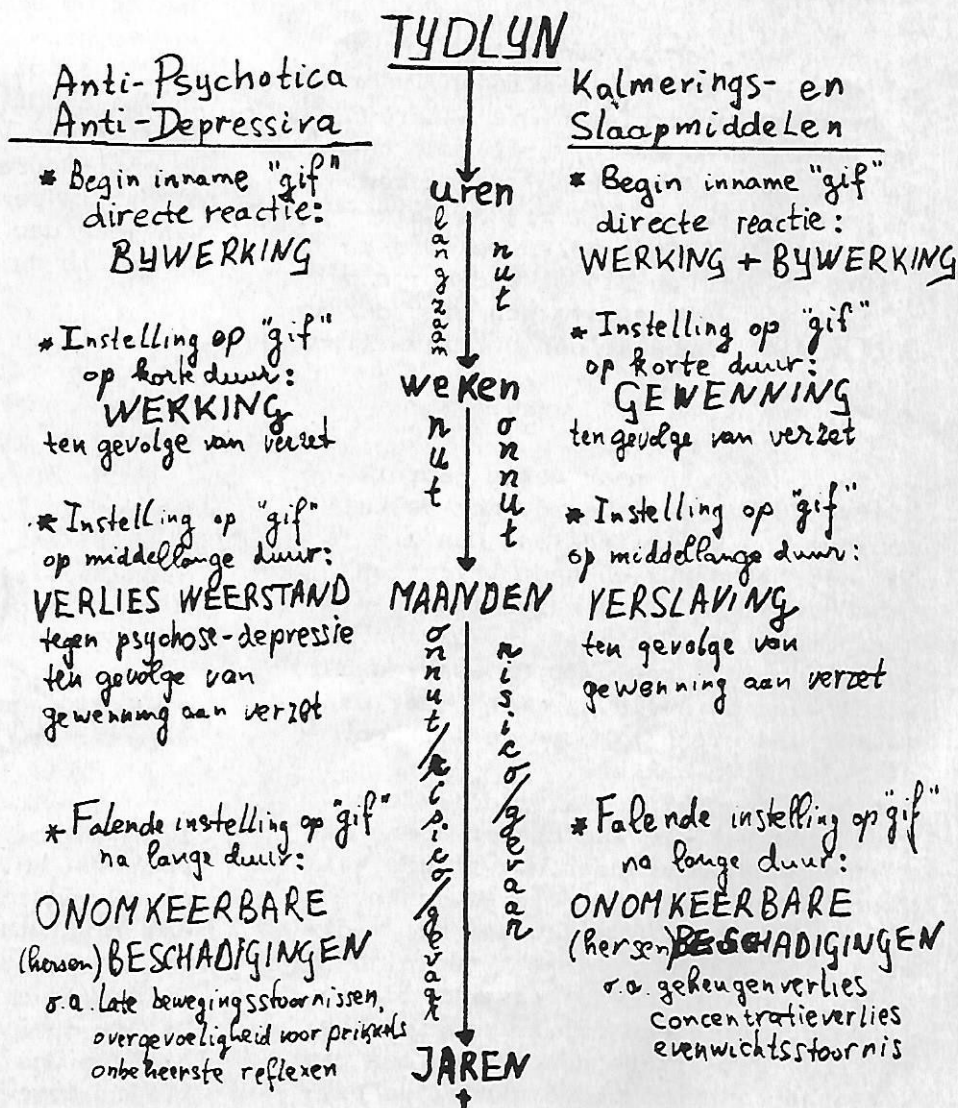 TYDLYN
Anti-Psychotica
Anti-Depressiva
* Begin inname "gif"
directe reactie:
BYWERKING
* Instelling op "gif"
op korte duur:
WERKING
ten gevolge van verzet
* Instelling op "gif"
op middellange duur:
VERLIES WEERSTAND
tegen psychose-depressie
ten gevolge van
gewenning aan verzet
* Falende instelling op "gif"
na lange duur:
ONOMKEERBARE
(hersen) BESCHADIGINGEN
o.a. late bewegingsstoornissen,
overgevoeligheid voor prikkels
onbeheerste reflexen
uren
langzaam
nut
weken
nut
onnut
MAANDEN
onnut/risico/gevaar
risico/gevaar
JAREN
Kalmerings- en
Slaapmiddelen
* Begin inname "gif"
directe reactie:
WERKING + BYWERKING
* Instelling op "gif"
op korte duur:
GEWENNING
ten gevolge van verzet
* Instelling op "gif"
op middellange duur:
VERSLAVING
ten gevolge van
gewenning aan verzet
* Falende instelling op "gif"
na lange duur:
ONOMKEERBARE
(hersen) BESCHADIGINGEN
o.a. geheugenverlies
concentratieverlies
evenwichtsstoornis